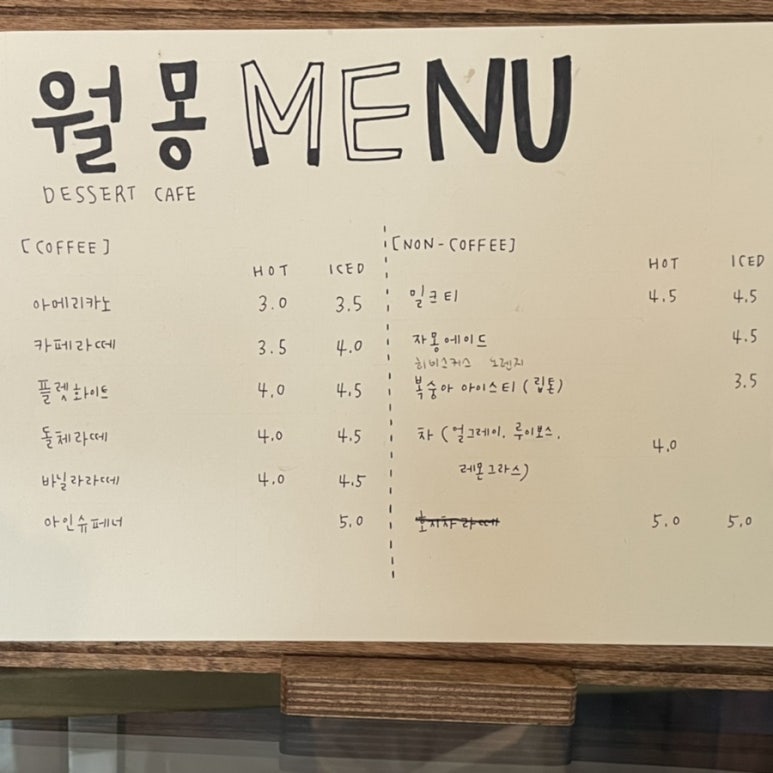 월몽 MENU
DESSERT CAFE
[COFFEE]
HOT ICED
아메리카노 3.0 3.5
카페라떼 3.5 4.0
플렛화이트 4.0 4.5
돌체라떼 4.0 4.5
바닐라라떼 4.0 4.5
아인슈페너 5.0
[NON-COFFEE]
HOT ICED
밀크티 4.5 4.5
자몽에이드 4.5
히비스커스 오렌지
복숭아 아이스티 (립톤) 3.5
차 (얼그레이, 루이보스, 4.0
레몬그라스)
호지차라떼 5.0 5.0